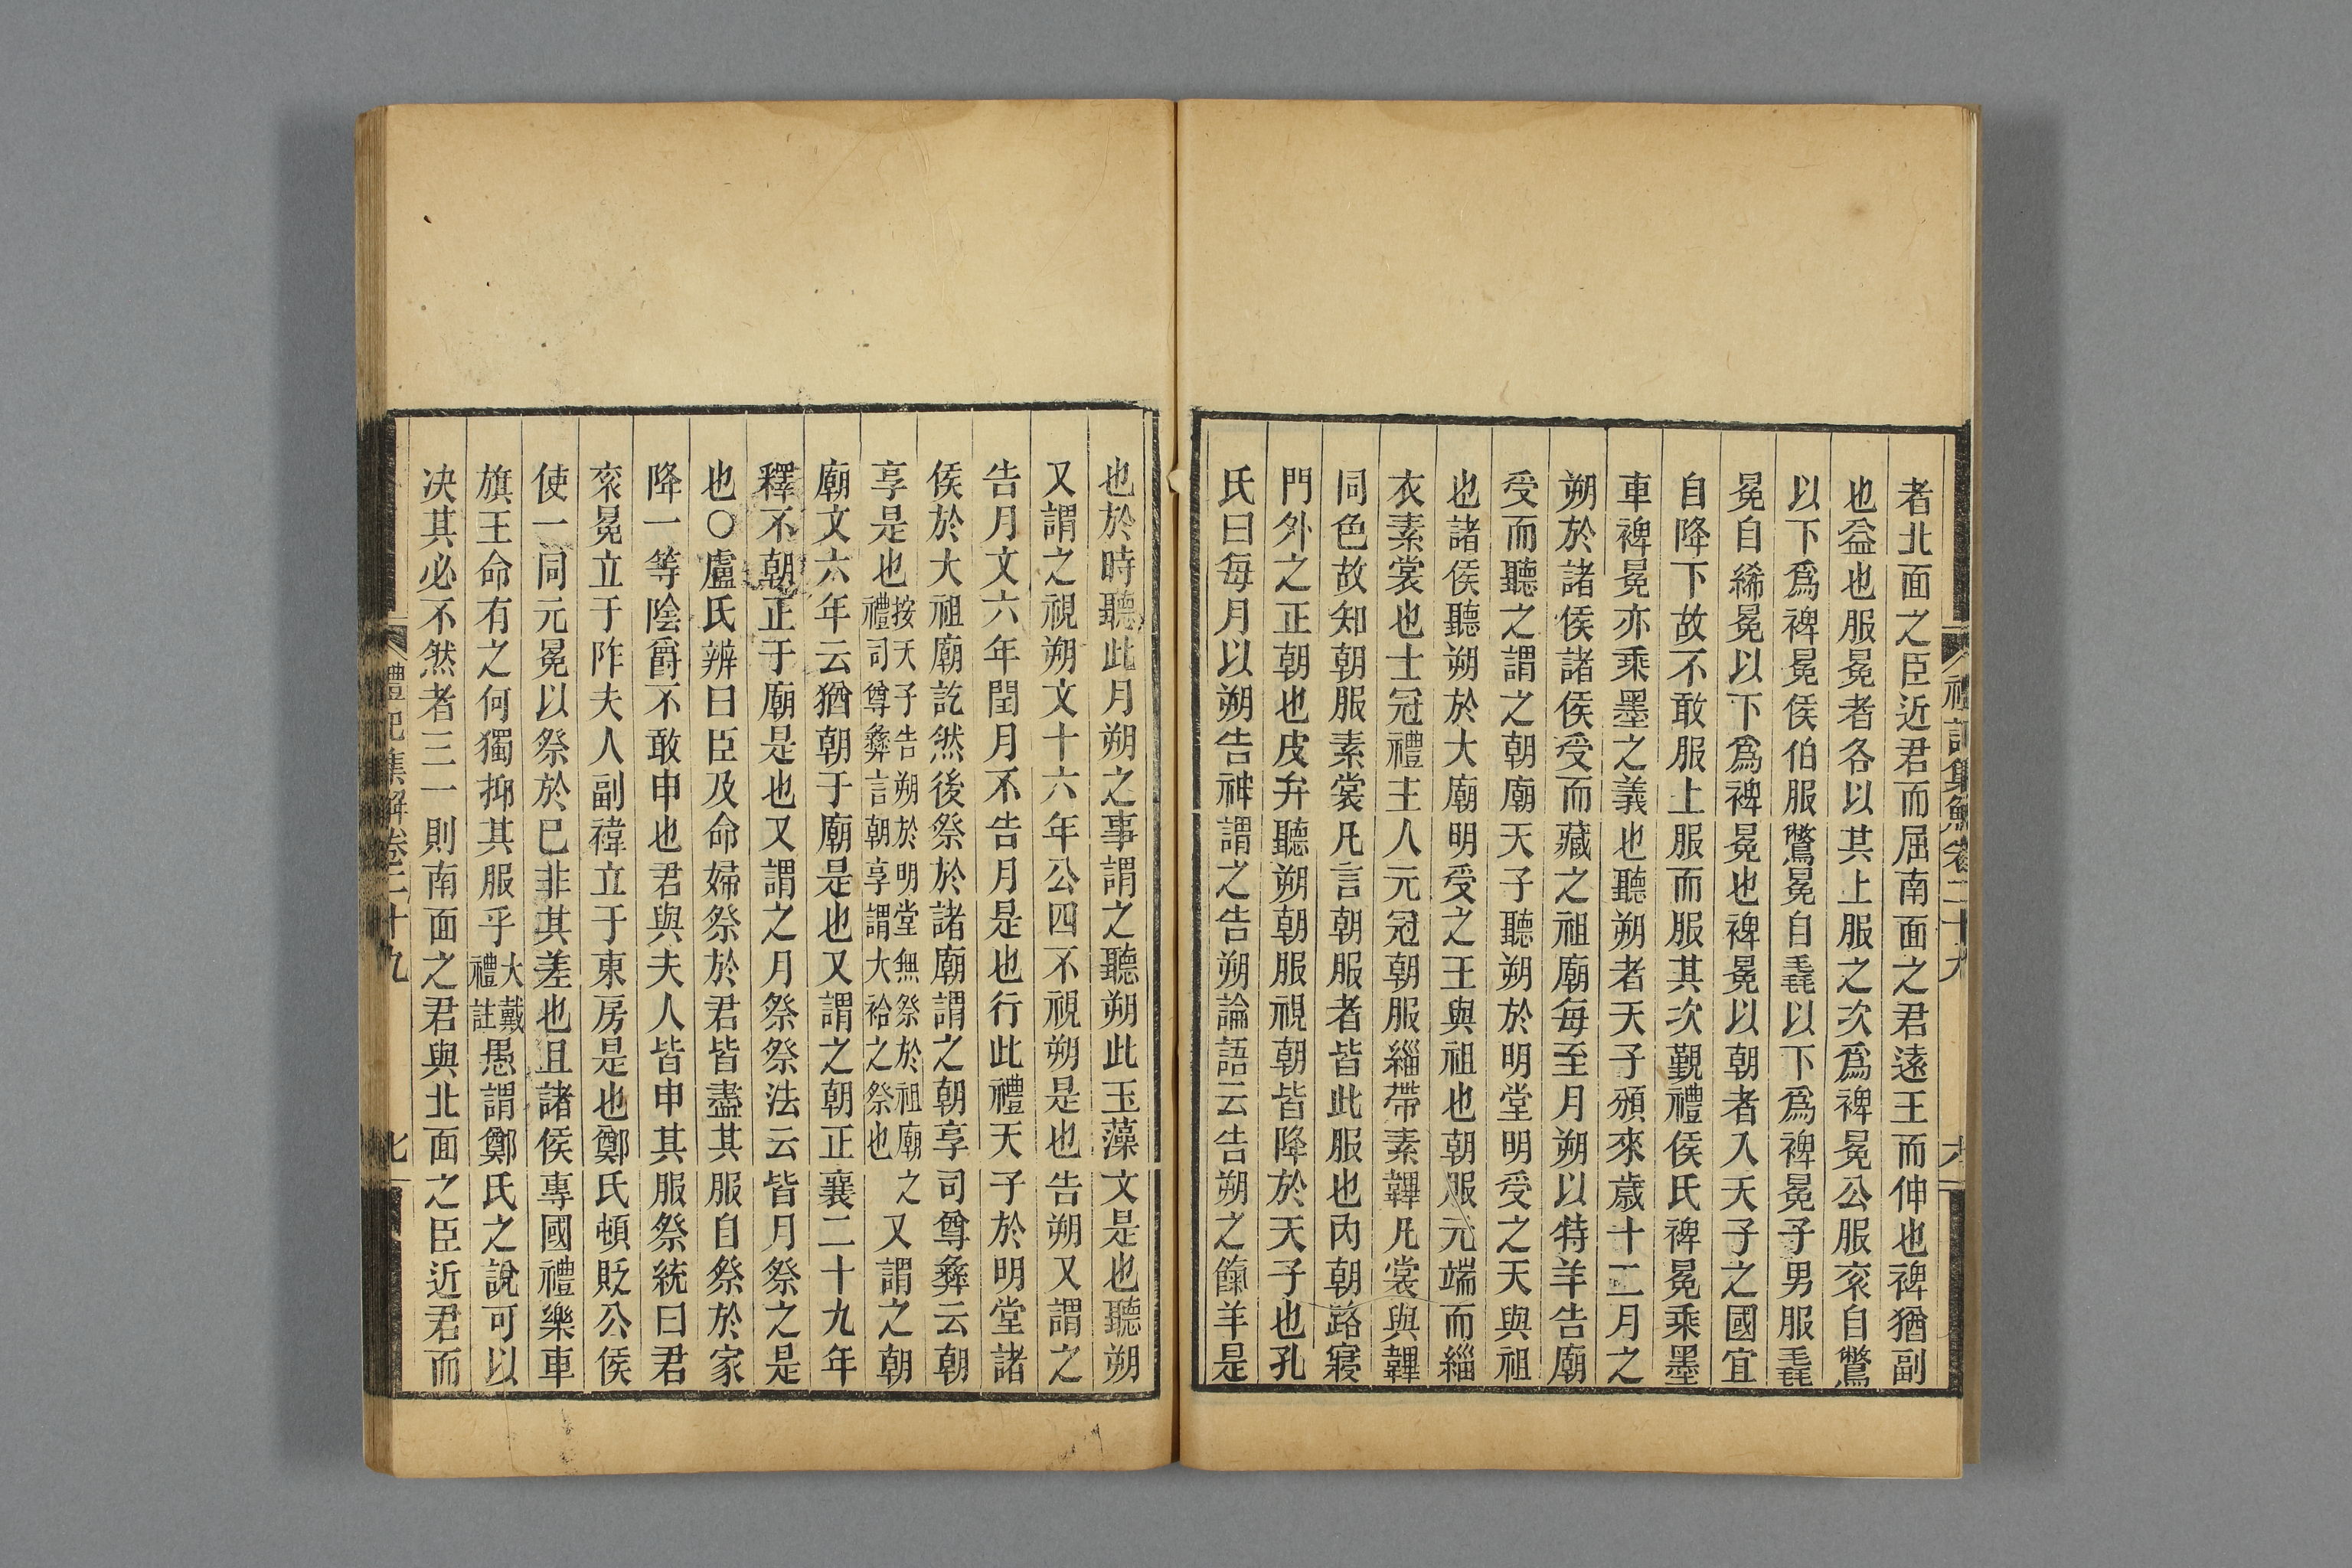 禮記集解卷二十九
六
者北面之臣近君而屈南面之君遠王而伸也裨猶副
也益也服冕者各以其上服之次爲裨冕公服衮自鷩
以下爲裨冕侯伯服鷩冕自毳以下爲裨冕子男服毳
冕自絺冕以下爲裨冕也裨冕以朝者入天子之國宜
自降下故不敢服上服而服其次觐禮侯氏裨冕乘墨
車裨冕亦乘墨之義也聽朔者天子頒來歲十二月之
朔於諸侯諸侯受而藏之祖廟每至月朔以特羊告廟
受而聽之謂之朝廟天子聽朔於明堂明受之天與祖
也諸侯聽朔於大廟明受之王與祖也朝服元端而緇
衣素裳也士冠禮主人元冠朝服緇帶素韠凡裳與韠
同色故知朝服素裳凡言朝服者皆此服也內朝路寢
門外之正朝也皮弁聽朔朝服視朝皆降於天子也孔
氏曰每月以朔告神謂之告朔論語云告朔之餼羊是
也於時聽此月朔之事謂之聽朔此玉藻文是也聽朔
又謂之視朔文十六年公四不視朔是也告朔又謂之
告月文六年閏月不告月是也行此禮天子於明堂諸
侯於大祖廟訖然後祭於諸廟謂之朝享司尊彝云朝
享是也按天子告朔於明堂無祭於祖廟之禮司尊彝言朝享謂大祫之祭也又謂之朝
廟文六年云猶朝于廟是也又謂之朝正襄二十九年
釋不朝正于廟是也又謂之月祭祭法云皆月祭之是
也○盧氏辨曰臣及命婦祭於君皆盡其服自祭於家
降一等陰爵不敢申也君與夫人皆申其服祭統曰君
衮冕立于阼夫人副褘立于東房是也鄭氏頓貶公侯
使一同元冕以祭於已非其差也且諸侯專國禮樂車
旗王命有之何獨抑其服乎大戴禮註愚謂鄭氏之說可以
决其必不然者三一則南面之君與北面之臣近君而
禮記集解卷二十九